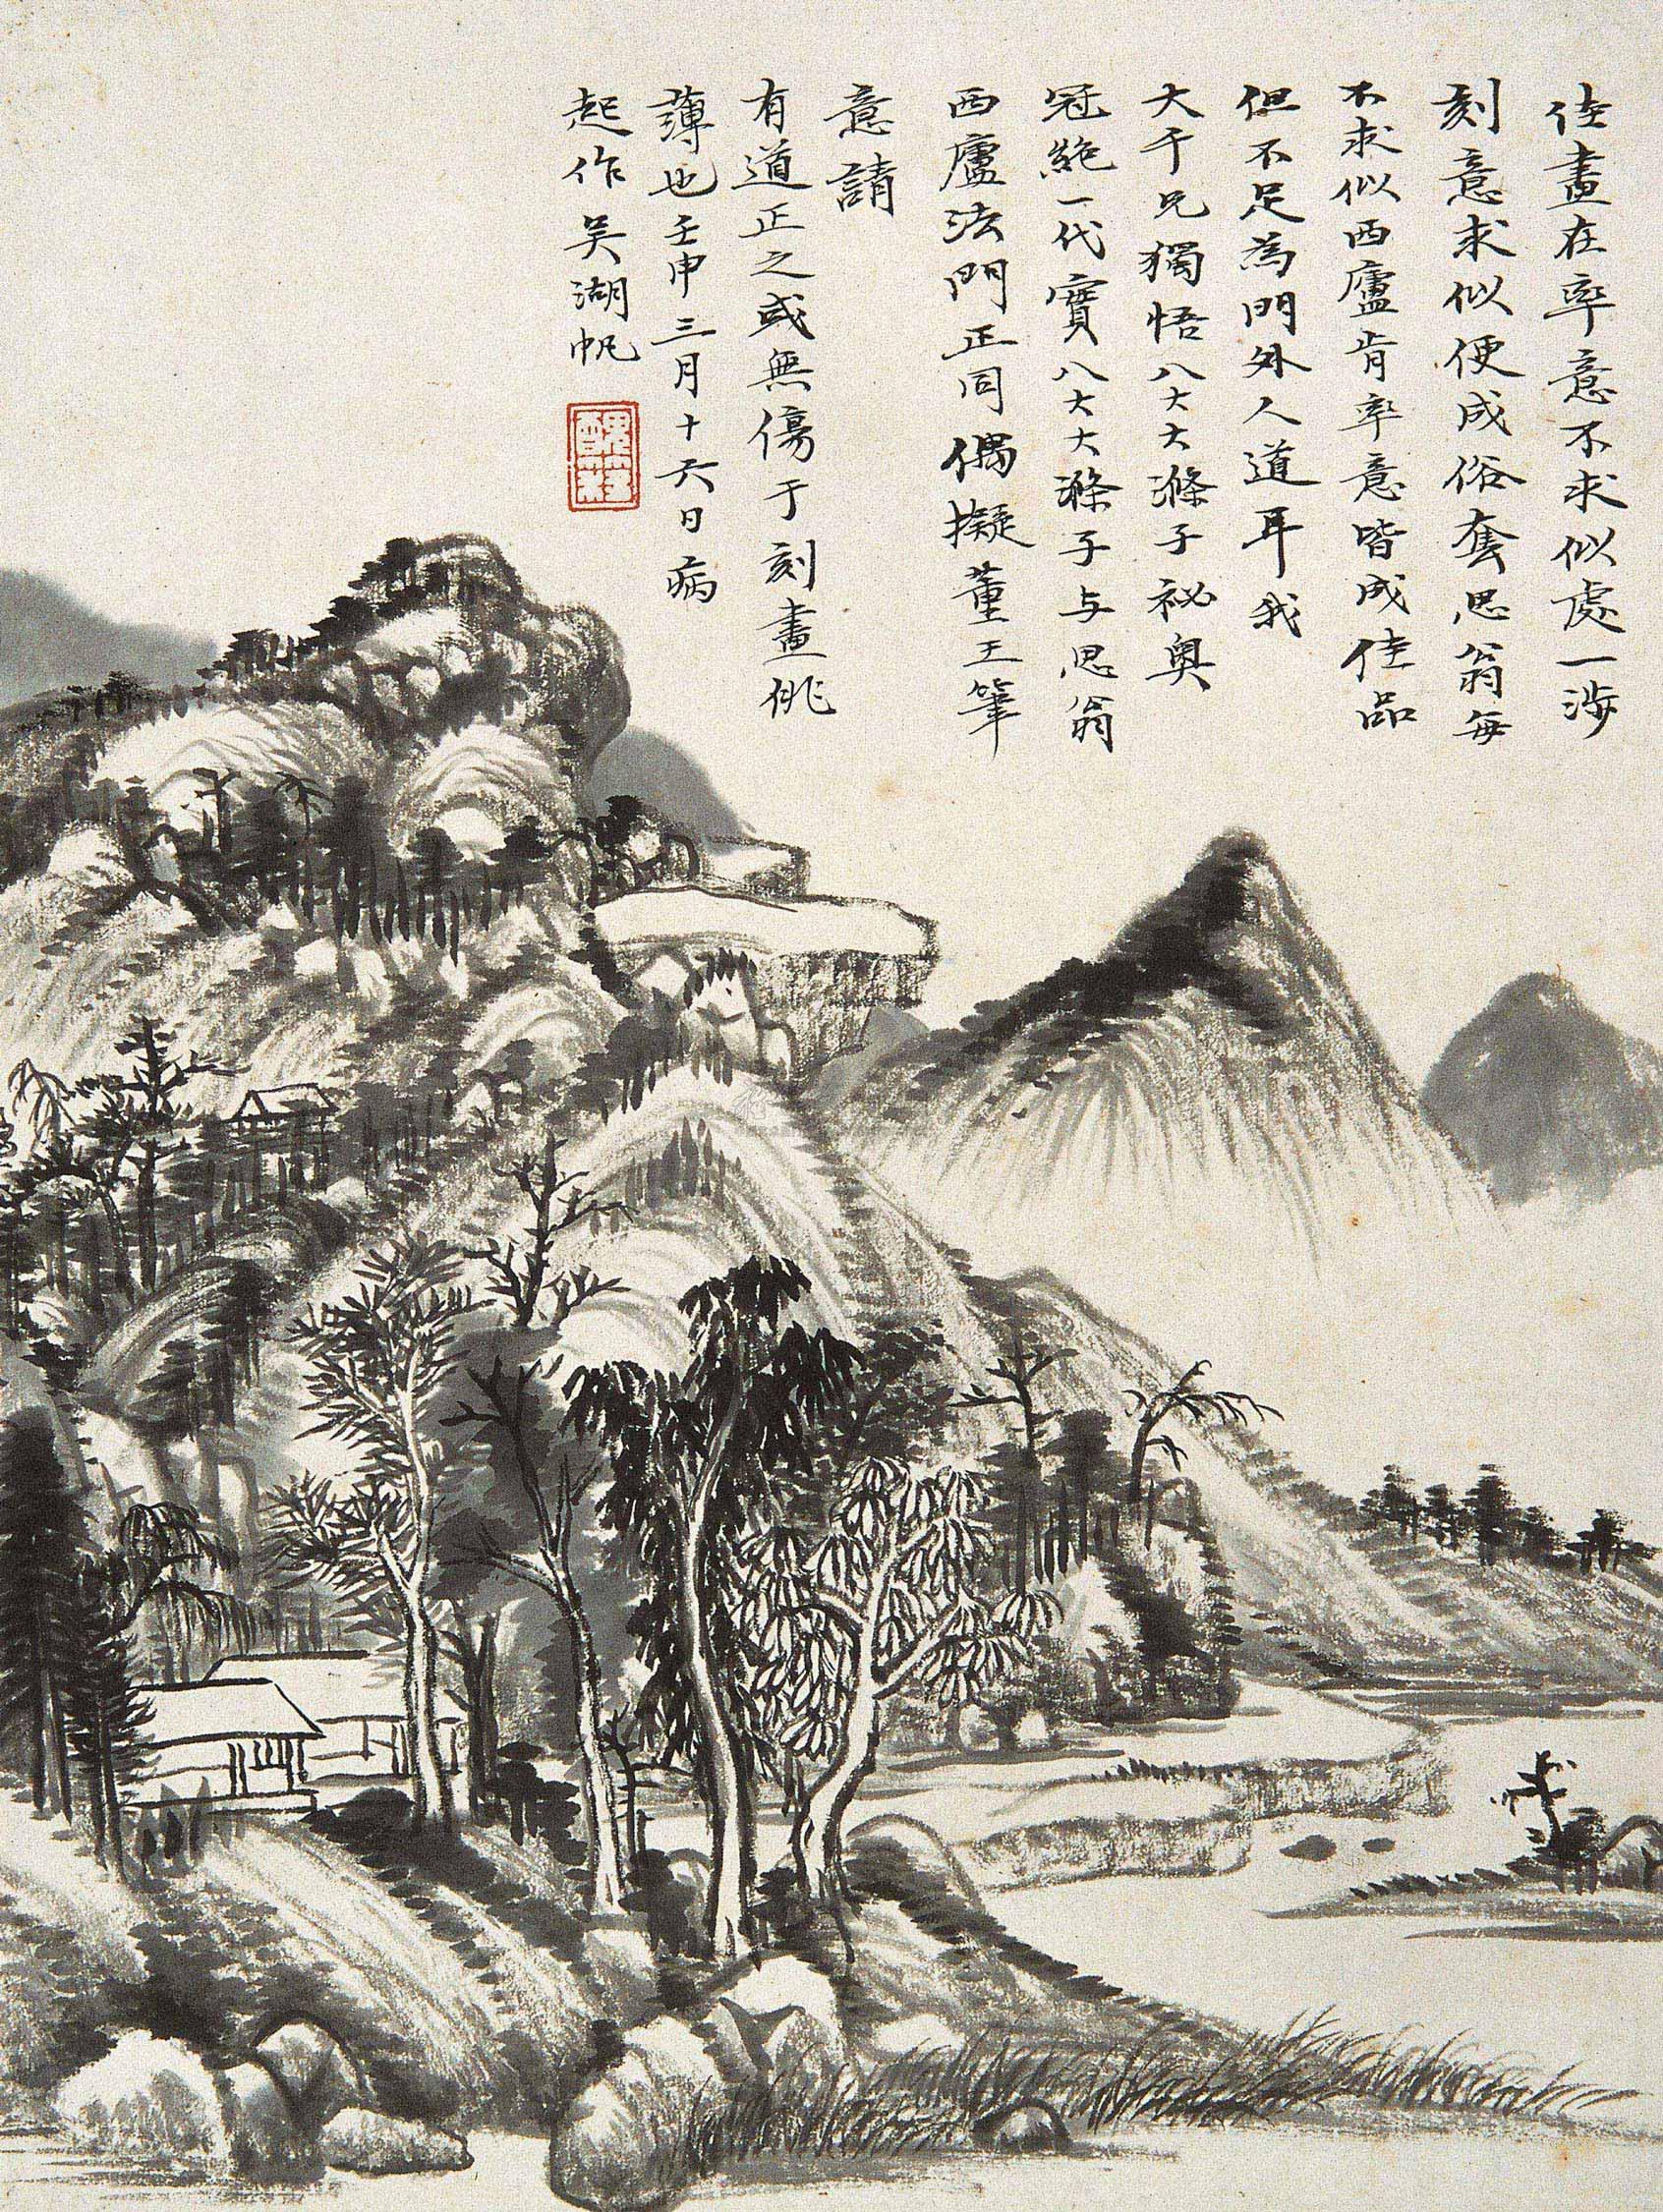 佳畫在率意不求似處一涉
刻意求似便成俗套思翁每
不求似西廬肯率意皆成佳品
但不足為門外人道耳我
大千兄獨悟八大大滌子祕奧
冠絶一代實八大大滌子与思翁
西廬法門正同偶擬董王筆
意請
有道正之或無傷于刻畫佻
薄也壬申三月十六日病
起作吴湖帆